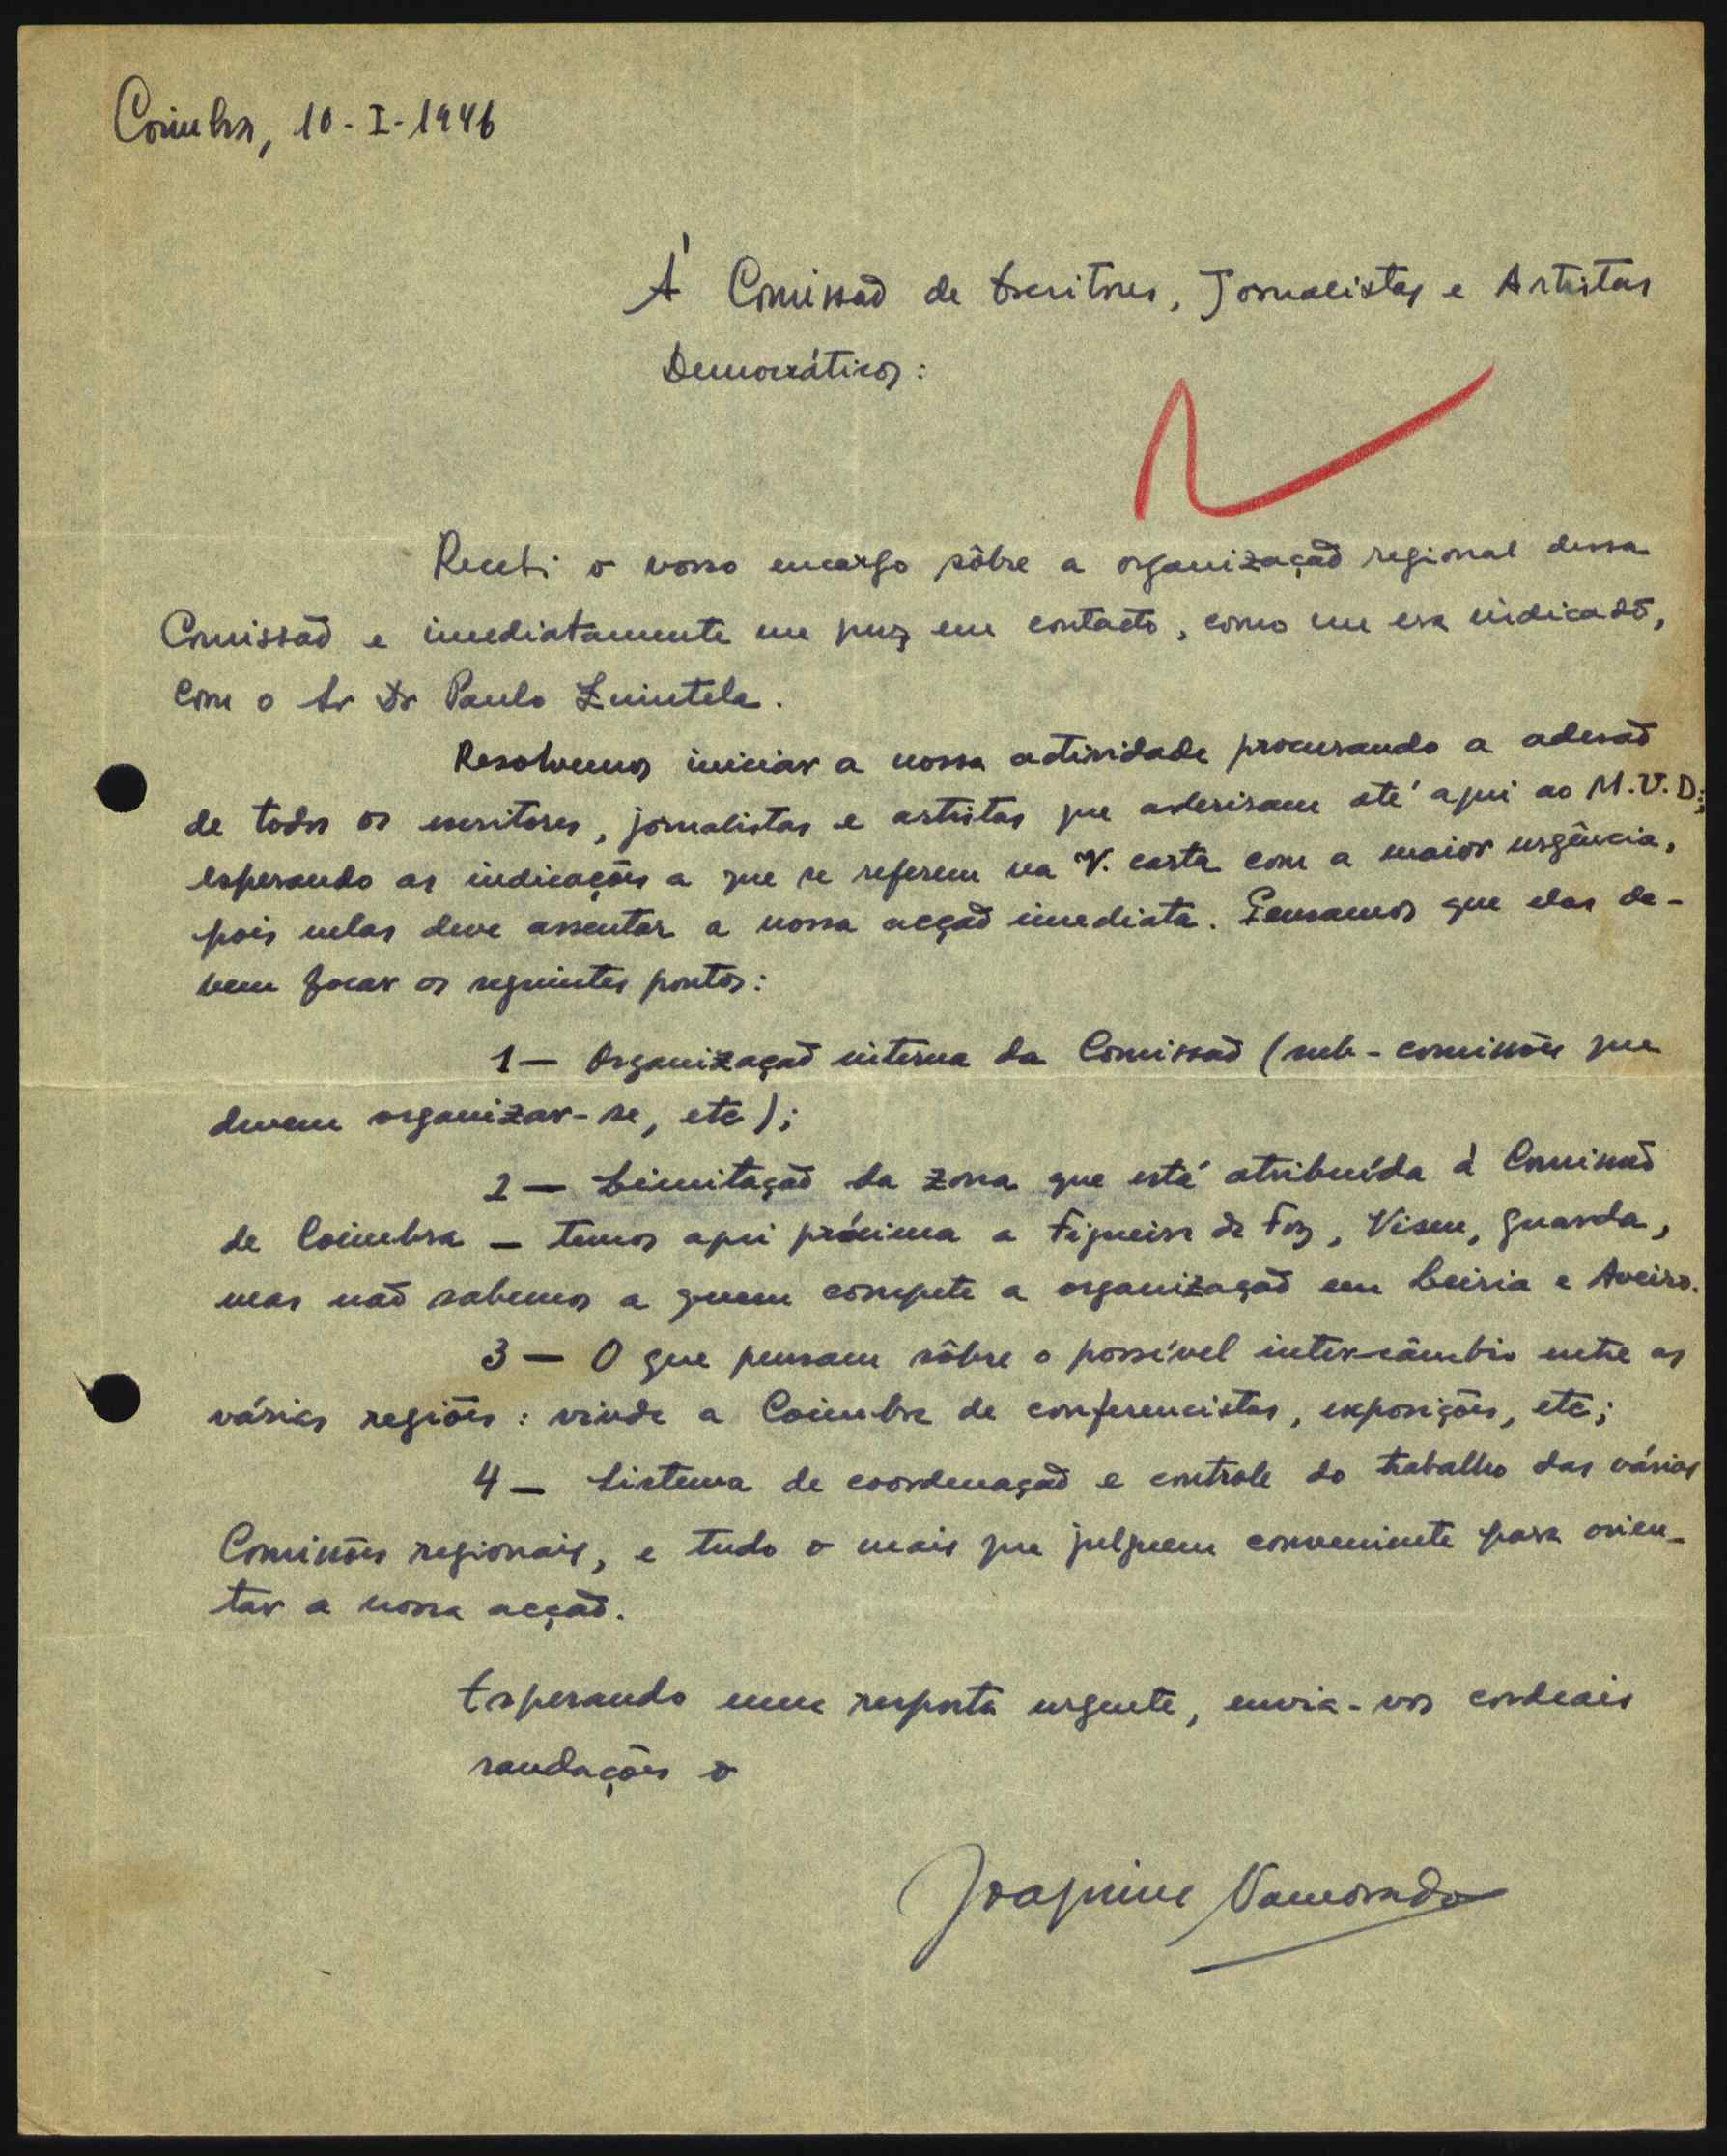 Coimbra, 10-I-1946
Á Comissão de Escritores, Jornalistas e Artistas
Democráticos:
Recebi o vosso encargo sôbre a organização regional dessa
Comissão e imediatamente me puz em contacto, como me era indicado,
com o Sr Dr Paulo Quintela.
Resolvemos iniciar a nossa actividade procurando a adesão
de todos os escritores, jornalistas e artistas que aderiram até aqui ao M.U.D.;
esperando as indicações a que se referem na V. carta com a maior urgência,
pois nelas deve assentar a nossa acção imediata. Pensamos que elas de-
vem focar os seguintes pontos:
1 — Organização interna da Comissão (sub-comissões que
devem organizar-se, etc);
2 — Limitação da zona que está atribuída á Comissão
de Coimbra — temos aqui próxima a Figueira da Foz, Viseu, Guarda,
mas não sabemos a quem compete a organização em Leiria e Aveiro.
3 — O que pensam sôbre o possível inter-câmbio entre as
várias regiões: vinda a Coimbra de conferencistas, exposições, etc;
4 — Sistema de coordenação e controle do trabalho das várias
Comissões regionais, e tudo o mais que julguem conveniente para orien-
tar a nossa acção.
Esperando uma resposta urgente, envia-vos cordeais
saudações o
Joaquim Namorado